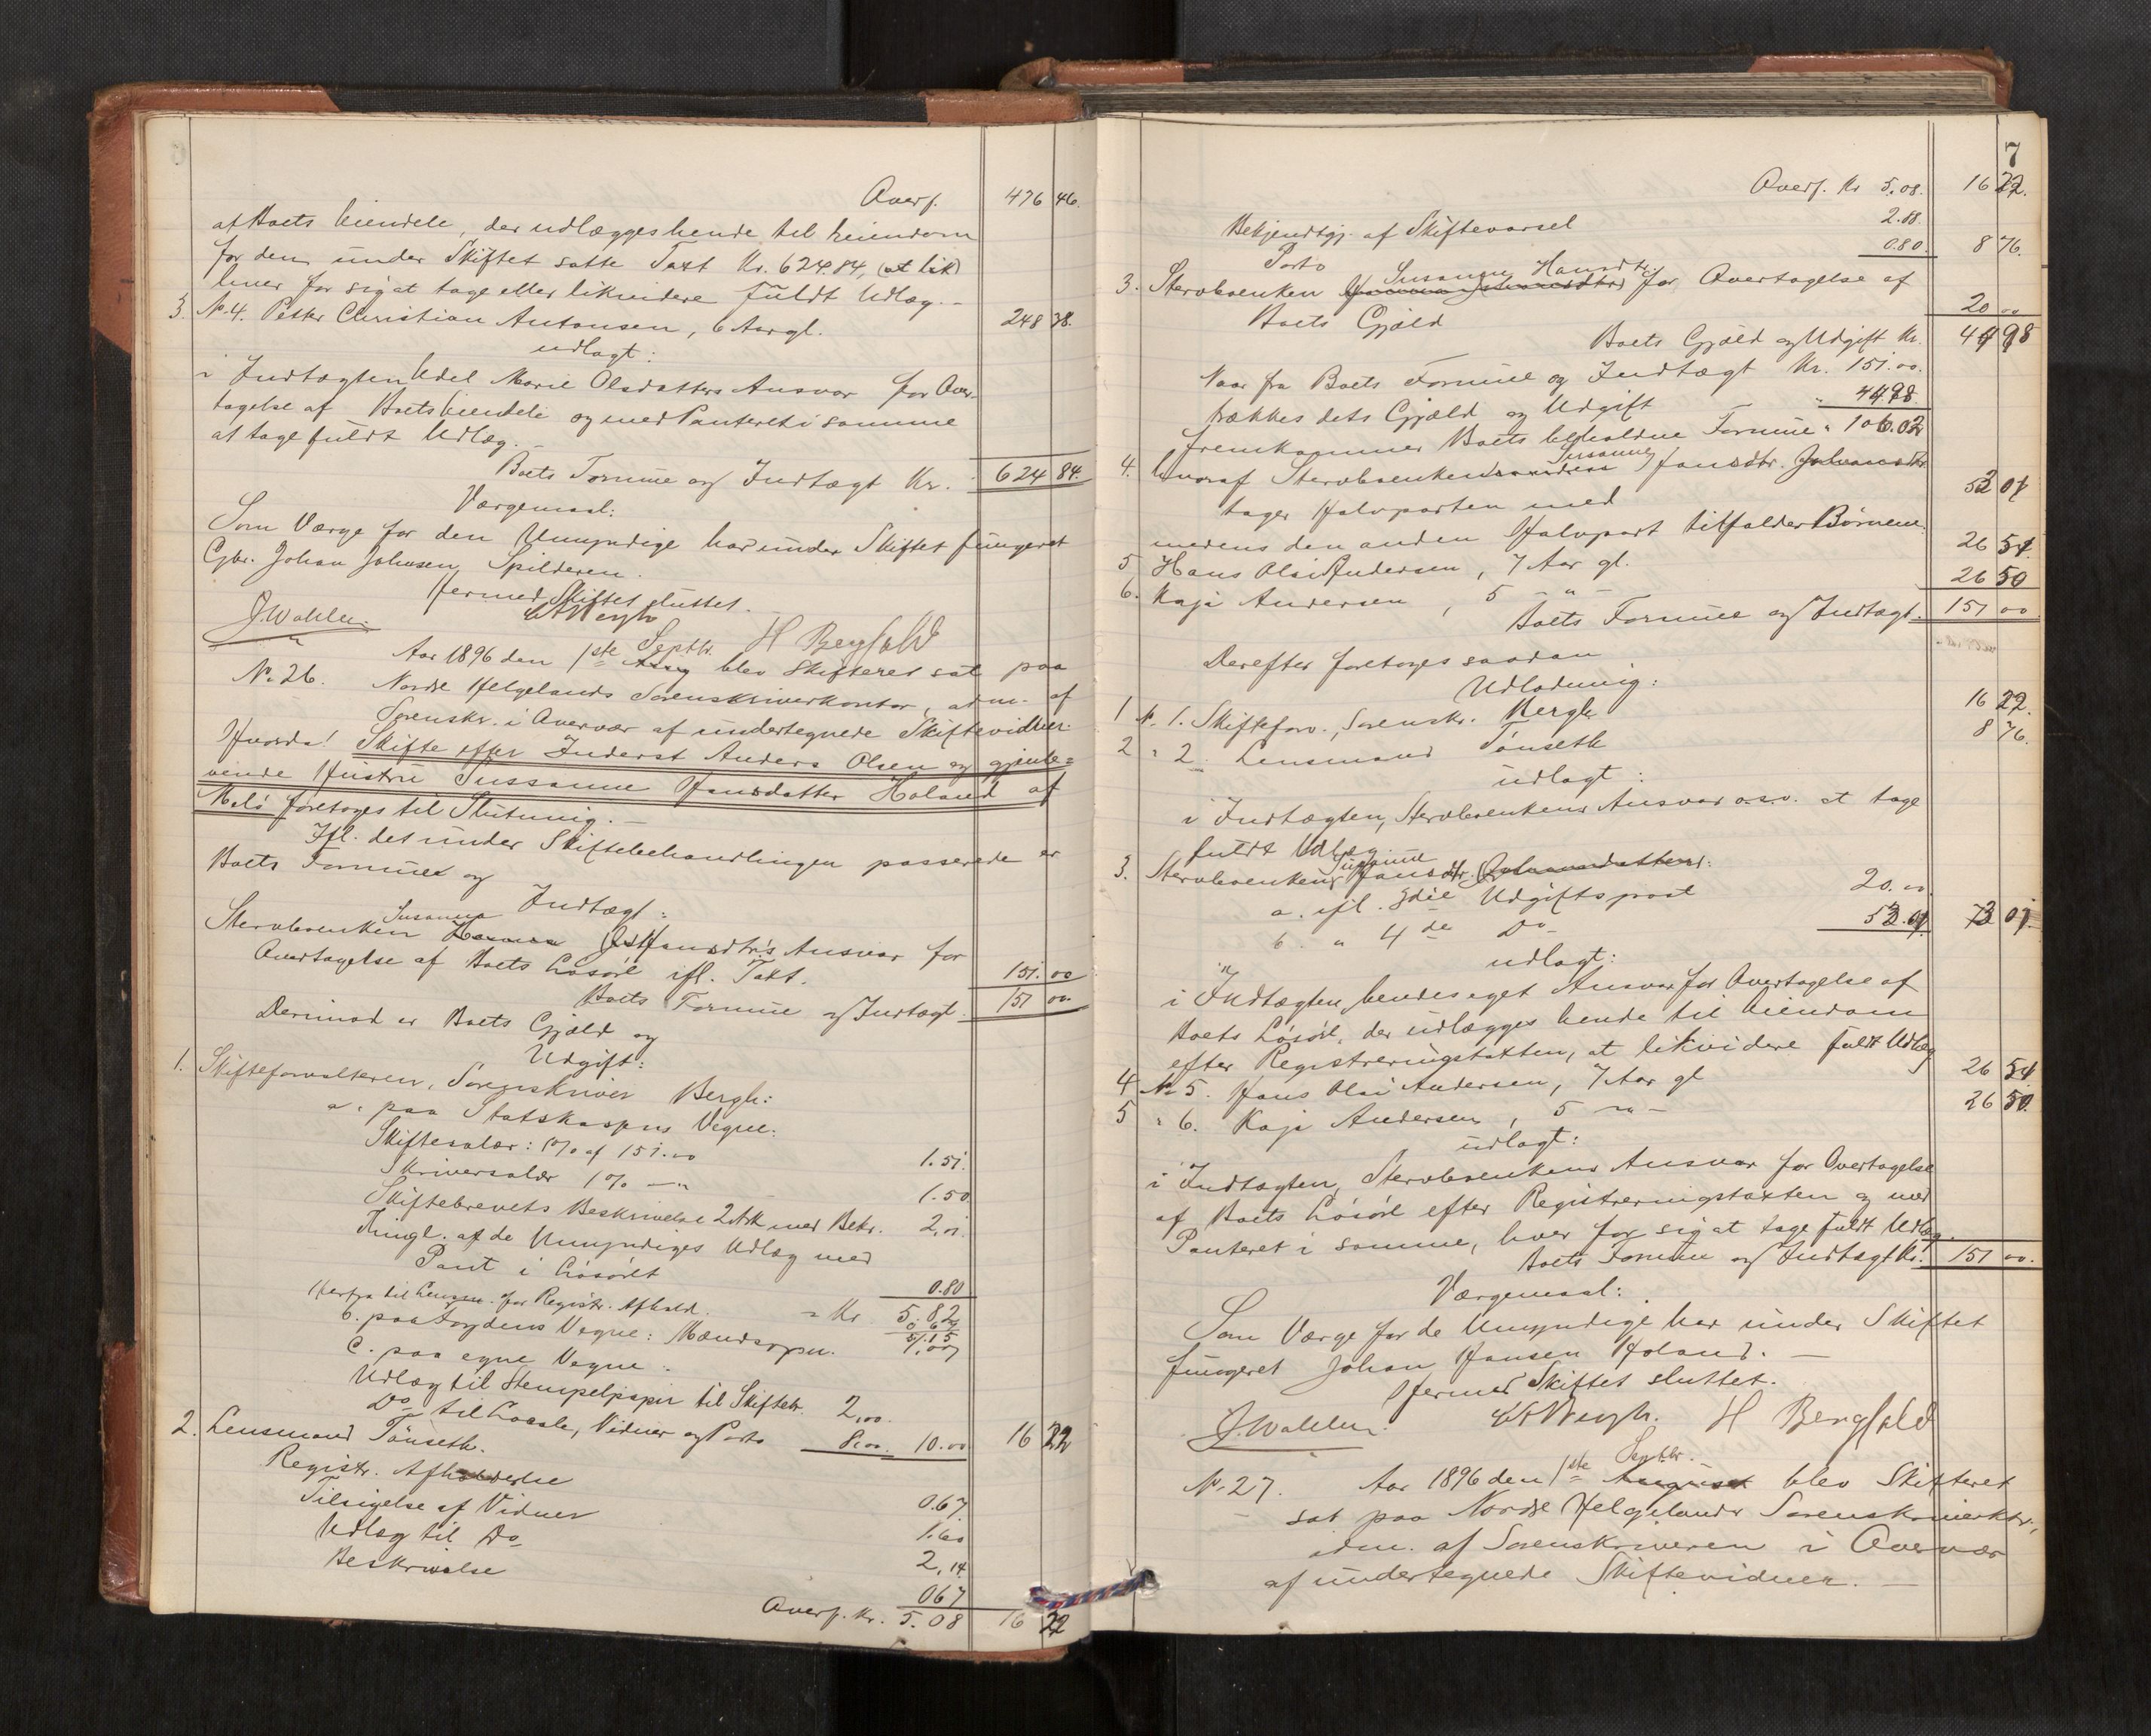 Overf. 476 46.
af Boets Eiendele, der udlægges hende til Eiendom
for den under Skiftet satte Taxt Kr. 624.84, (at lik)
hver for sig at tage eller likvidere fuldt Udlæg. -
3. No 4. Peder Christian Antonsen, 6 Aar gl. 248 38.
udlagt:
i Indtægten Udel Marie Olsdatters Ansvar for Over-
tagelse af Boets Eiendele og med Panteret i samme
at tage fuldt Udlæg. -
Boets Formue og Indtægt Kr. 624 84.
Værgemaal:
Som Værge for den Umyndige har under Skiftet fungeret
Gbr. Johan Johnsen Spilderen.
Hermed Skiftet sluttet. -
J. Wahlen. H Bergfald
Aar 1896 den 1ste Septbr. blev Skifteret sat paa
No. 26. Nordre Helgelands Sorenskriverkontor, adm. af
Sorenskr. i Overvær af undertegnede Skiftevidner
Hvorda! Skifte efter Inderst Anders Olsen og gjenle-
vende Hustru Sussanne Hansdatter Holand af
Melø foretoges til Slutning. -
Ifl. det under Skiftebehandlingen passerede er
Boets Formue og
Indtægt:
Susanna
Stervboenken Hansdtr's Ansvar for
Overtagelse af Boets Løsøre ifl. Taxt. 151. 00
Boets Formue og Indtægt. 151 00.
Derimod er Boets Gjæld og
Udgift:
1. Skifteforvalteren, Sorenskriver Bergh:
a. paa Statskassens Vegne:
Skiftesalær: 1% af 151.00 1.51.
Skriversalær 1% -"- 1.50
Skiftebrevets Beskrivelse 2 Ark med Bekr. 2,01.
Thingl. af de Umyndiges Udlæg med
Pant i Løsøret 0.80
Herfra til Lensm. for Registr. Afhold. = Kr 5,82
b. paa Sorgdens Vegne: Mændspen.
c. paa egne Vegne:
Udlæg til Stempelpapir til Skiftebr. 2,00.
Do til Locale, Vidner og Porto 8.00. 10.00 16 22
2. Lensmand Tönseth.
Registr. Afholdelse 0.67.
Tilsigelse af Vidner 1.60
Udlæg til Do 2,14
Beskrivelse 067
Overf. Kr. 5.08 16 22
7
Overf. Kr 5.08. 16 22.
Bekjendtgj. af Skiftevarsel 2.88.
Porto 0.80. 8 76.
Susanna Hansdtr.
3. Stervboenken for Overtagelse af
Boets Gjæld 20 00
Boets Gjæld og Udgift Kr. 44 98
Naar fra Boets Formue og Indtægt Kr. 151.00.
trækkes dets Gjæld og Udgift " 44.98
fremkommer Boets beholdne Formue " 106.02
Susanne
4. hvoraf Stervboenken Hansdtr.
tager Halvparten med 53 01
medens den anden Halvpart tilfalder Børnene
5 Hans Olai Andersen, 7 Aar gl. 26 51.
6. Kaja Andersen, 5 - " - 26 50
Boets Formue og Indtægt. 151 00
Derefter foretoges saadan
Udlodning:
1 No. 1. Skifteforv., Sorenskr. Bergh 16 22.
2 " 2 Lensmand Tönseth 8 76.
udlagt:
i Indtægten, Stervboenkens Ansvar o.s.v. at tage
fuldt Udlæg
Susanne
3. Stervboenken Hansdtr.
a. ifl. 3die Udgiftspost 20.00.
b. " 4de Do 53.01. 73 01.
udlagt:
i Indtægten, hendes eget Ansvar for Overtagelse af
Boets Løsøre, der udlægges hende til Eiendom
efter Registreringstaxten, at likvidere fuldt Udlæg
4 No 5. Hans Olai Andersen, 7 Aar gl 26 51
5 " 6. Kaja Andersen, 5 - " - 26 50.
udlagt:
i Indtægten, Stervboenkens Ansvar for Overtagelse
af Boets Løsøre efter Registreringstaxten og med
Panteret i samme, hver for sig at tage fuldt Udlæg.
Boets Formue og Indtægt Kr. 151 00.
Værgemaal:
Som Værge for de Umyndige har under Skiftet
fungeret Johan Hansen Holand. -
Hermed Skiftet sluttet.
J. Wahlen. H Bergfald
Septbr.
No. 27. Aar 1896 den 1ste August blev Skifteret
sat paa Nordre Helgelands Sorenskriverktr.,
adm. af Sorenskriveren i Overvær
af undertegnede Skiftevidner. -